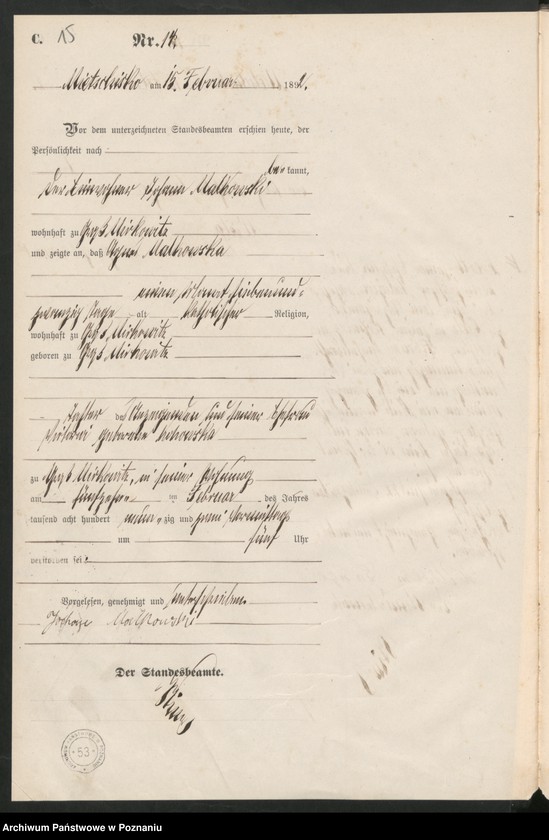 C. 15 Nr. 14
Mietschisko am 15. Februar 1892.
Vor dem unterzeichneten Standesbeamten erschien heute, der
Persönlichkeit nach
be kannt,
der Einwohner Johann Malkowski
wohnhaft zu
und zeigte an, daß Agnes Malkowska
einen Monat siebenund-
zwanzig Tage alt katholischer Religion,
wohnhaft zu
geboren zu
Tochter des Anzeigenden und seiner Ehefrau
geborene
zu in seiner Wohnung
am fünfzehnten Februar des Jahres
tausend acht hundert neun zig und zwei Vormittags
um fünf Uhr
verstorben sei
Vorgelesen, genehmigt und unterschrieben
Malkowski
Der Standesbeamte.
53
Archiwum Państwowe w Poznaniu